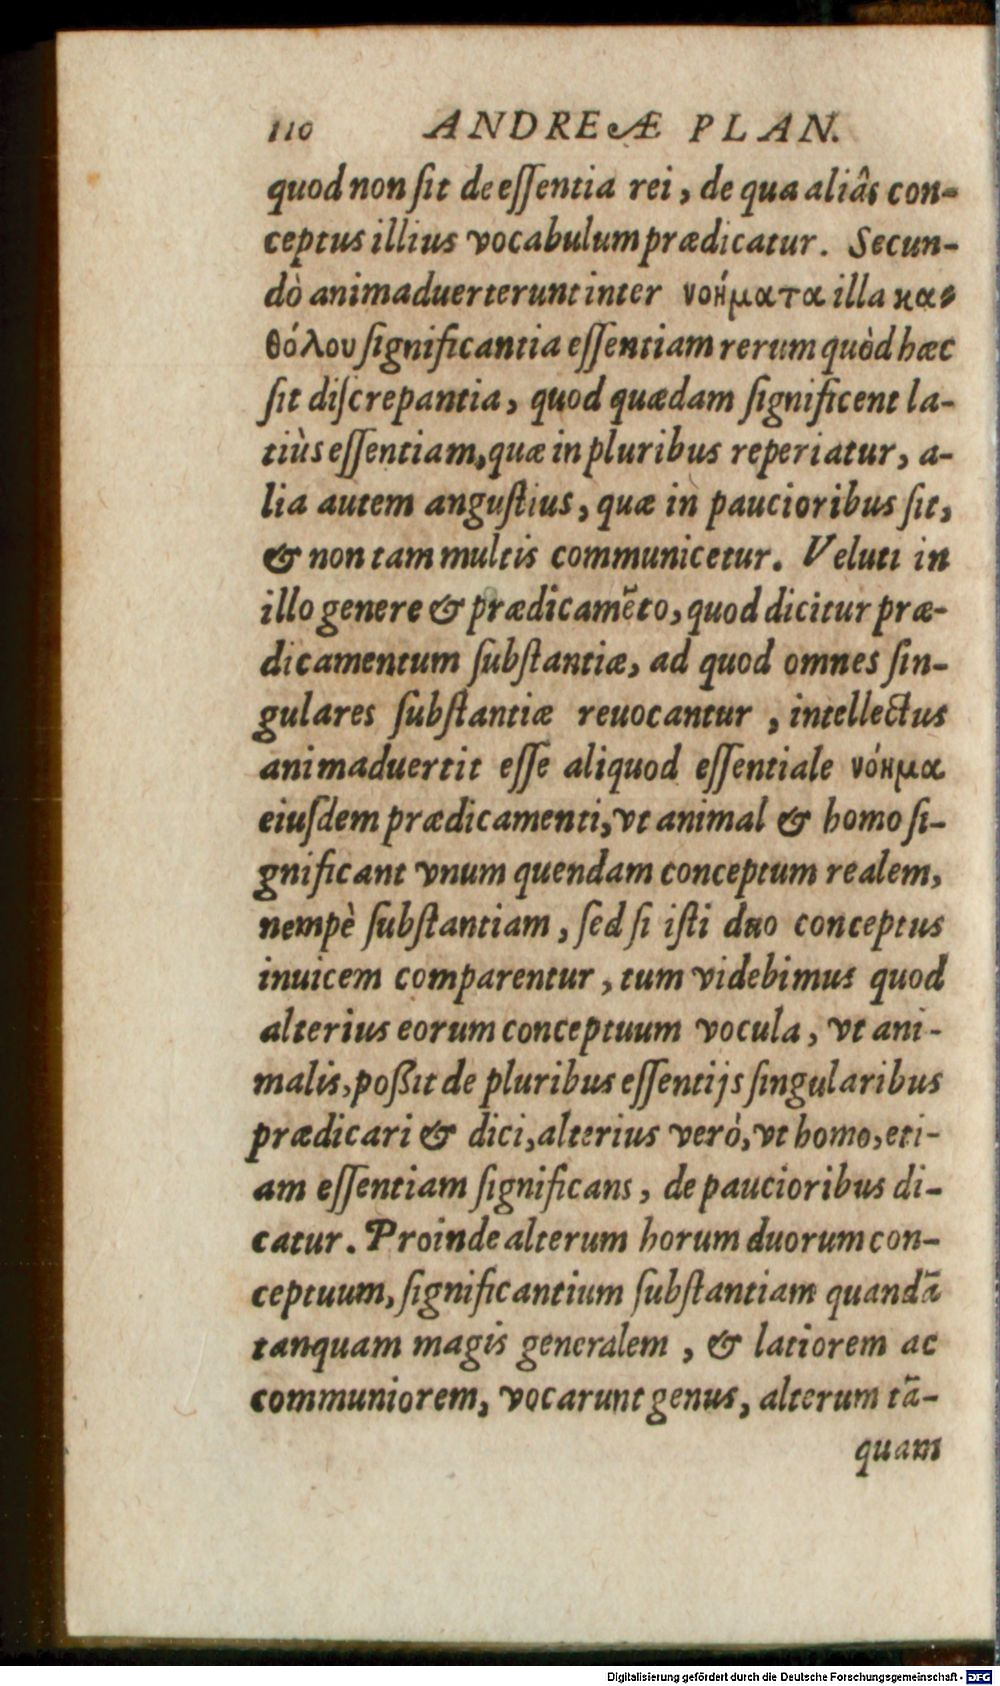 110 ANDREÆ PLAN.
quod non ſit de eſſentia rei, de qua aliâs con-
ceptus illius vocabulum prædicatur. Secun-
dò animaduerterunt inter νοήματα illa κα-
θόλου ſignificantia eſſentiam rerum quòd hæc
ſit diſcrepantia, quod quædam ſignificent la-
tiùs eſſentiam, quæ in pluribus reperiatur, a-
lia autem anguſtius, quæ in paucioribus ſit,
& non tam multis communicetur. Veluti in
illo genere & prædicamẽto, quod dicitur præ-
dicamentum ſubſtantiæ, ad quod omnes ſin-
gulares ſubſtantiæ reuocantur, intellectus
animaduertit eſſe aliquod eſſentiale νόημα
eiuſdem prædicamenti, vt animal & homo ſi-
gnificant vnum quendam conceptum realem,
nempè ſubſtantiam, ſed ſi iſti duo conceptus
inuicem comparentur, tum videbimus quod
alterius eorum conceptuum vocula, vt ani-
malis, poßit de pluribus eſſentijs ſingularibus
prædicari & dici, alterius verò, vt homo, eti-
am eſſentiam ſignificans, de paucioribus di-
catur. Proinde alterum horum duorum con-
ceptuum, ſignificantium ſubſtantiam quandã
tanquam magis generalem, & latiorem ac
communiorem, vocarunt genus, alterum tã-
quam
Digitalisierung gefördert durch die Deutsche Forschungsgemeinschaft - DFG